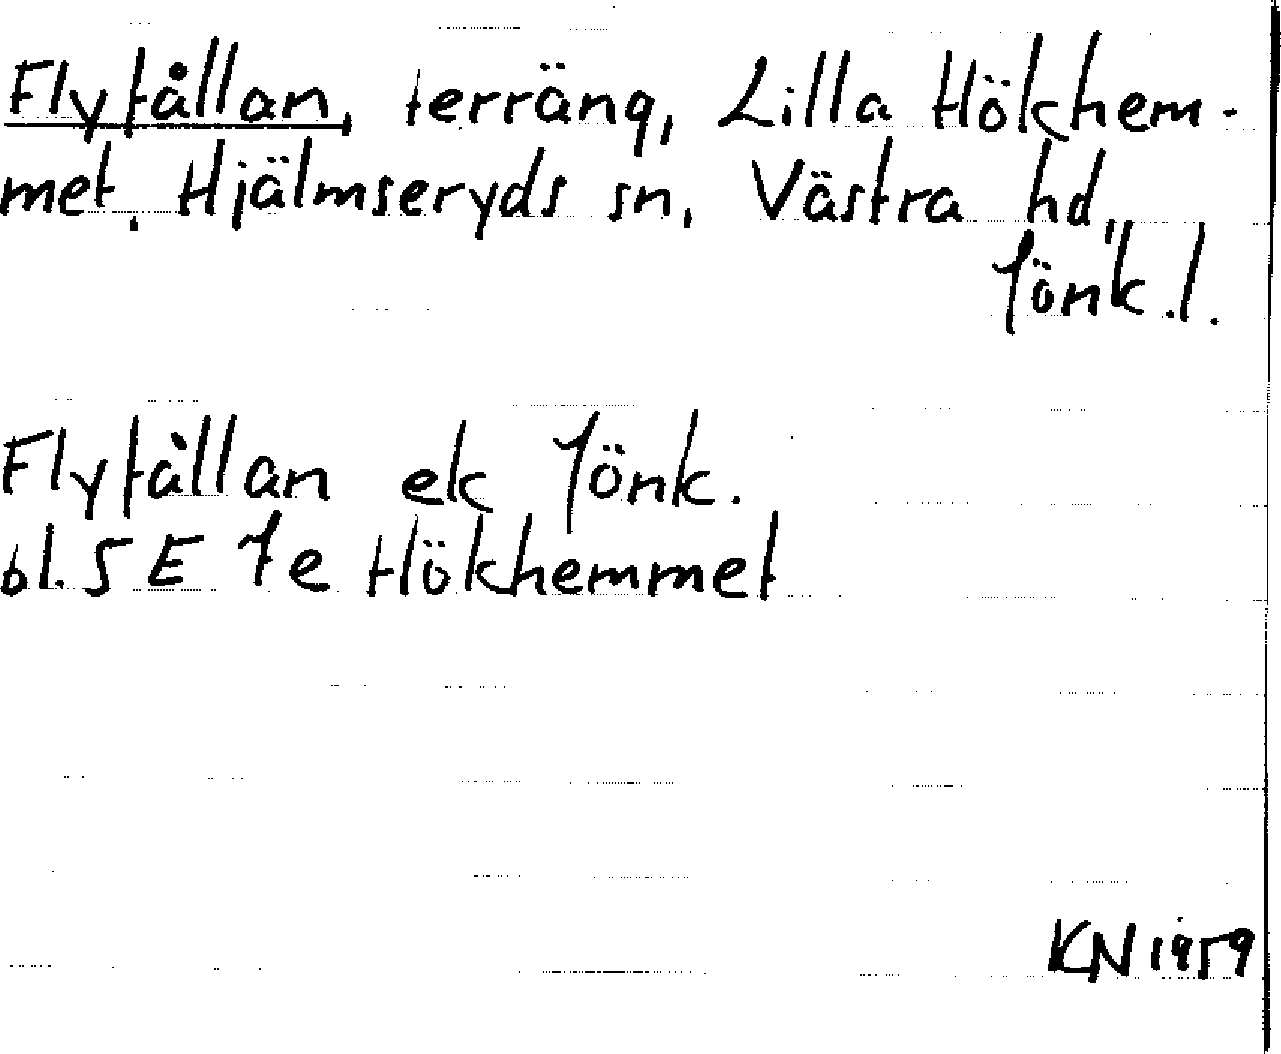 Flyfållan, terräng, Lilla Hökhem-
met, Hjälmseryds sn, Västra hd,
Jönk.l.
Flyfållan ek Jönk.
bl. 5 E 7e Hökhemmet
KN 1959